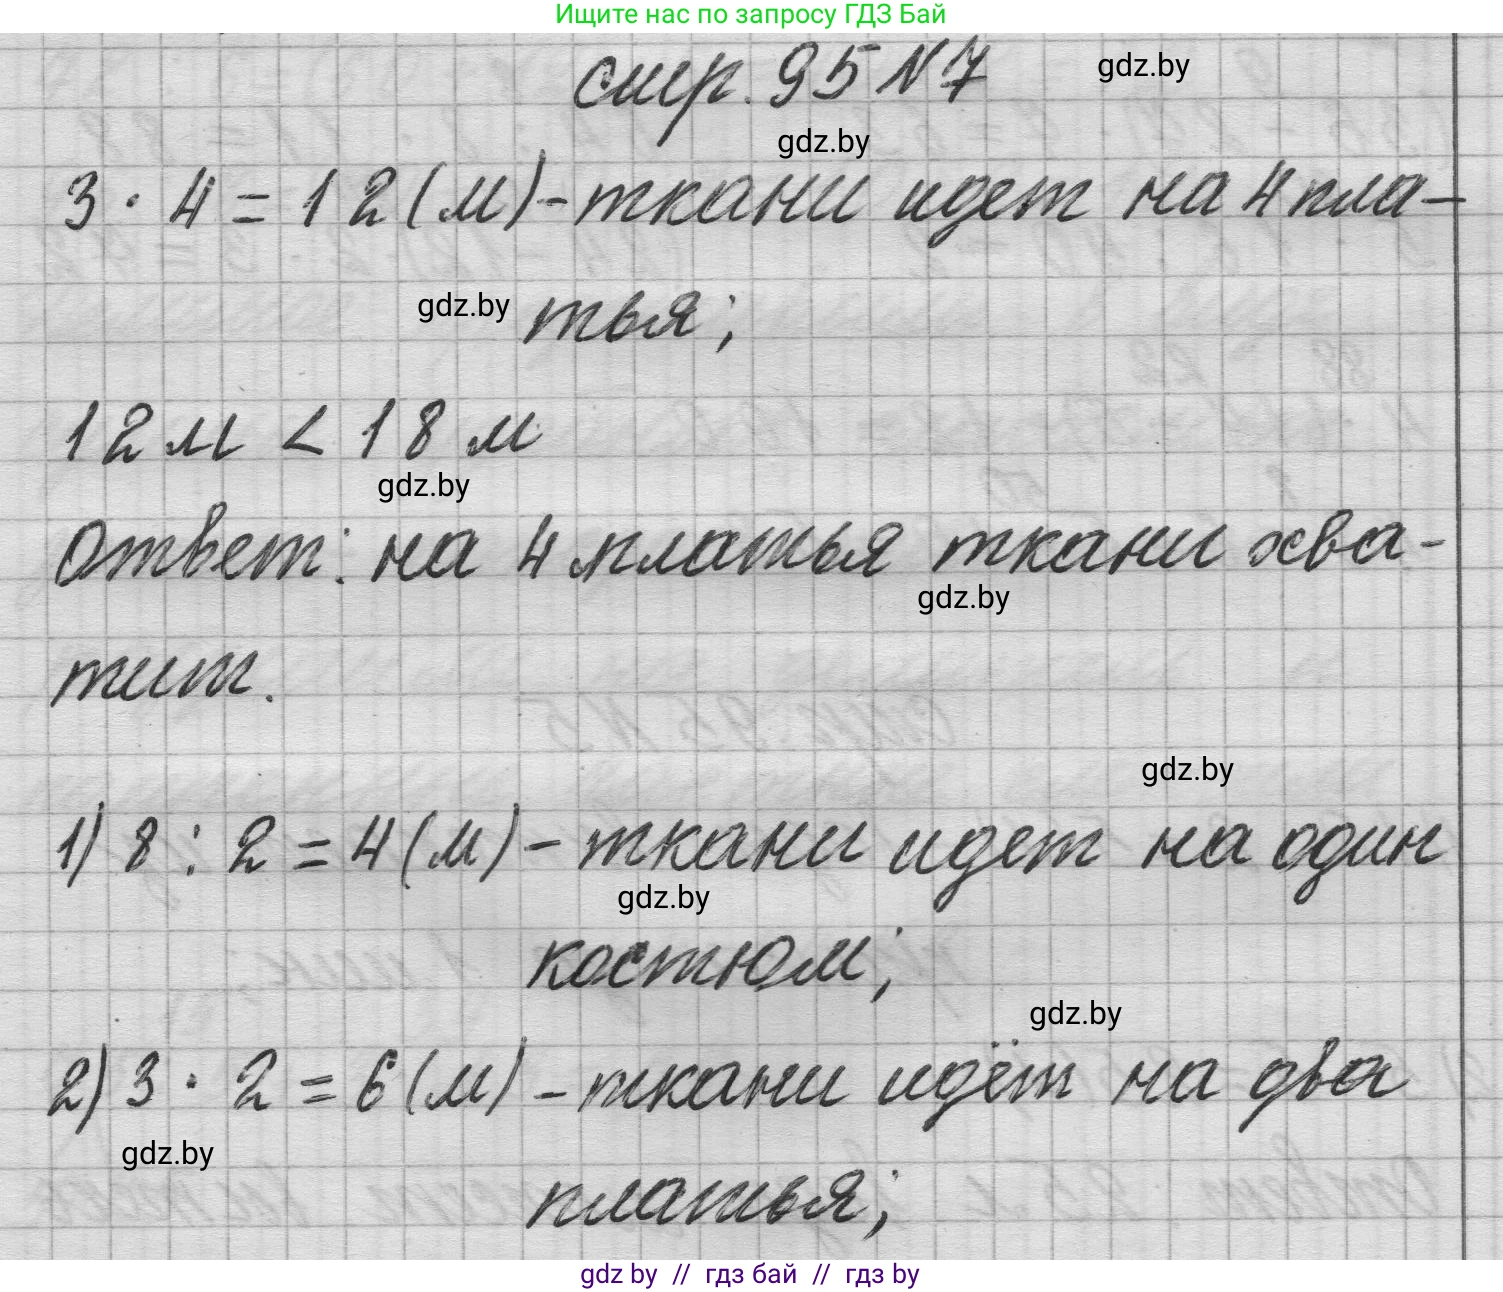 Ищите нас по запросу ГДЗ Бай
стр. 95 №7
gdz.by
gdz.by
3 · 4 = 12 (м) - ткани идет на 4 пла-
gdz.by
тья;
12 м < 18 м
gdz.by
Ответ: на 4 платья ткани хва-
gdz.by
тит.
gdz.by
1) 8 : 2 = 4 (м) - ткани идет на один
gdz.by
костюм;
gdz.by
2) 3 · 2 = 6 (м) - ткани идёт на два
gdz.by
платья;
gdz by // гдз бай // гдз by